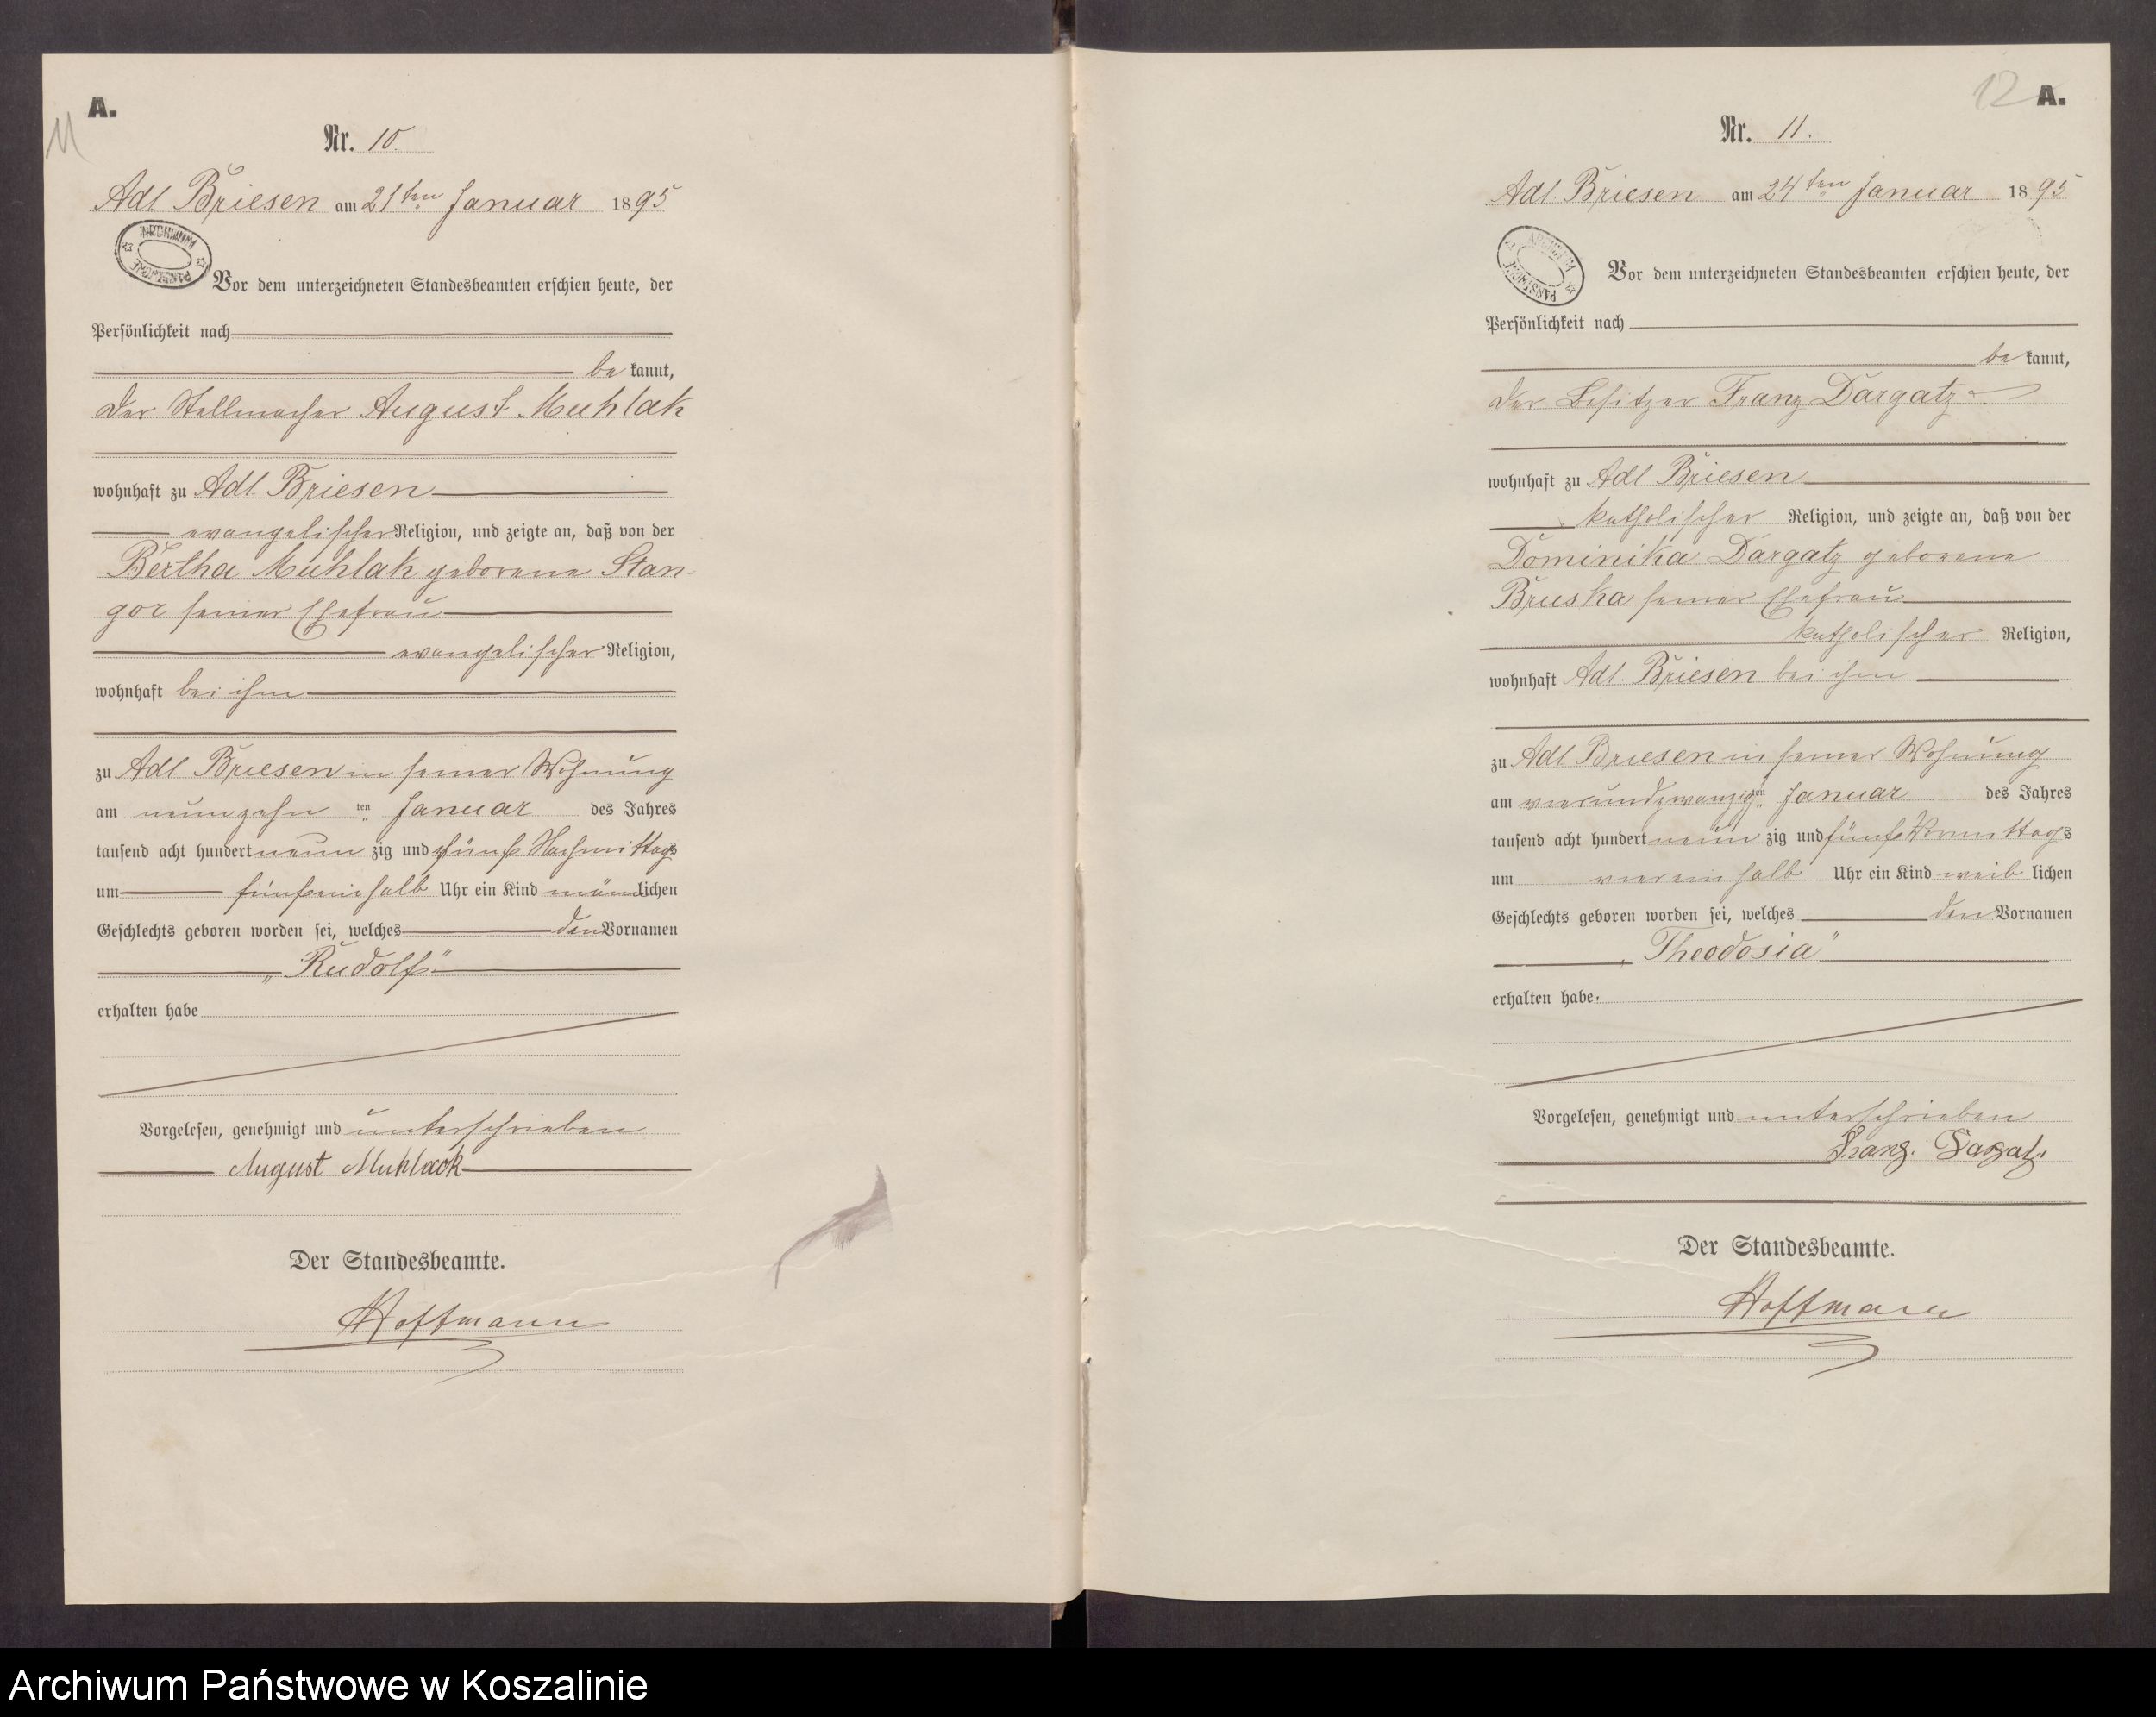 A.
11
Nr. 10.
Adl Briesen am 21ten Januar 1895
ARCHIWUM PAŃSTWOWE
Vor dem unterzeichneten Standesbeamten erschien heute, der
Persönlichkeit nach
be kannt,
der Stellmacher August Muhlak
wohnhaft zu Adl. Briesen
evangelischer Religion, und zeigte an, daß von der
Bertha Muhlak geborene Stan-
gor seiner Ehefrau
evangelischer Religion,
wohnhaft bei ihm
zu Adl Briesen in seiner Wohnung
am neunzehn ten Januar des Jahres
tausend acht hundert neun zig und fünf Nachmittags
um fünfeinhalb Uhr ein Kind männlichen
Geschlechts geboren worden sei, welches den Vornamen
„Rudolf“
erhalten habe
Vorgelesen, genehmigt und unterschrieben
August Muhlack
Der Standesbeamte.
Hoffmann
12 A.
Nr. 11.
Adl. Briesen am 24ten Januar 1895
ARCHIWUM PAŃSTWOWE
Vor dem unterzeichneten Standesbeamten erschien heute, der
Persönlichkeit nach
be kannt,
der Besitzer Franz Dargatz
wohnhaft zu Adl Briesen
katholischer Religion, und zeigte an, daß von der
Dominika Dargatz geborene
Bruska seiner Ehefrau
katholischer Religion,
wohnhaft Adl. Briesen bei ihm
zu Adl Briesen in seiner Wohnung
am vierundzwanzigten Januar des Jahres
tausend acht hundert neun zig und fünf Vormittags
um viereinhalb Uhr ein Kind weib lichen
Geschlechts geboren worden sei, welches den Vornamen
„Theodosia“
erhalten habe.
Vorgelesen, genehmigt und unterschrieben
Franz. Dargatz
Der Standesbeamte.
Hoffmann
Archiwum Państwowe w Koszalinie